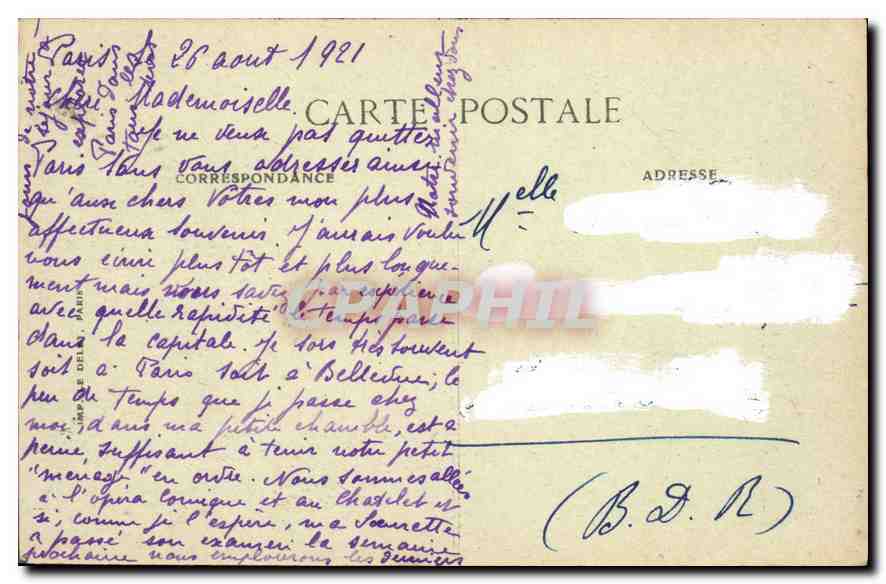 Paris le 26 aout 1921
Chère Mademoiselle
CARTE POSTALE
Je ne veux pas quitter
Paris sans vous adresser ainsi
CORRESPONDANCE
qu'aux chers Vôtres mon plus
affectueux souvenir. J'aurais voulu
vous écrire plus tôt et plus longue-
ment mais vous savez par expérience
avec quelle rapidité le temps passe
dans la capitale. Je sors très souvent
soit à Paris soit à Bellevue; le
peu de temps que je passe chez
moi, dans ma petite chambre, est à
peine suffisant à tenir notre petit
"ménage" en ordre. Nous sommes allées
à l'opéra Comique et au Chatelet et
si, comme je l'espère, ma Soeurette
a passé son examen la semaine
prochaine nous emploierons les derniers
jours de notre
séjour à
Paris dans
tous les
souvenir chez vous
ADRESSE
Melle
(B. D. R)
IMP. E. LE DELEY, PARIS
CPAPHIL